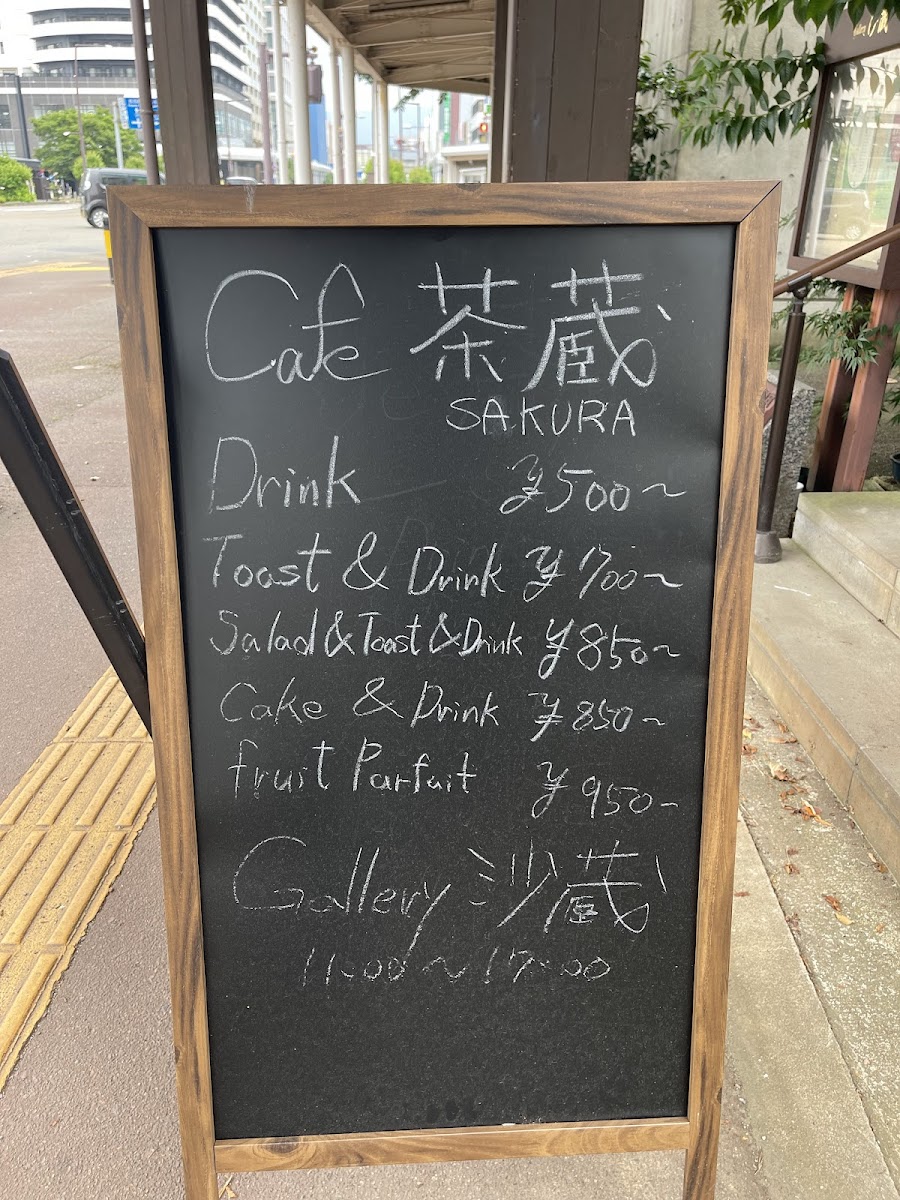 Cafe 茶蔵
SAKURA
Drink ¥500～
Toast & Drink ¥700～
Salad & Toast & Drink ¥850～
Cake & Drink ¥850～
fruit Parfait ¥950～
Gallery 沙蔵
11:00～17:00